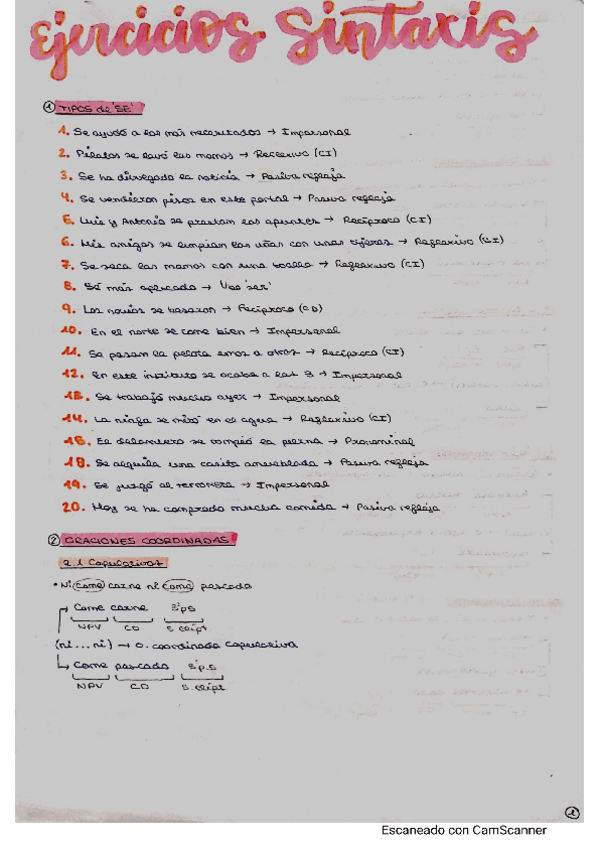 Ejercicios Sintaxis
① TIPOS de 'SE'
1. Se ayudó a los más necesitados → Impersonal
2. Pilatos se lavó las manos → Reflexivo (CI)
3. Se ha divulgado la noticia → Pasiva refleja
4. Se vendieron pisos en este portal → Pasiva refleja
5. Luis y Antonio se prestan los apuntes → Recíproco (CI)
6. Mis amigos se limpian las uñas con unas tijeras → Reflexivo (CI)
7. Se seca las manos con una toalla → Reflexivo (CI)
8. Sé más aplicado → Vbo 'ser'
9. Los novios se besaron → Recíproco (CD)
10. En el norte se come bien → Impersonal
11. Se pasan la pelota unos a otros → Recíproco (CI)
12. En este instituto se acaba a las 3 → Impersonal
13. Se trabajó mucho ayer → Impersonal
14. La ninfa se miró en el agua → Reflexivo (CI)
16. El delantero se rompió la pierna → Pronominal
18. Se alquila una casita amueblada → Pasiva refleja
19. Se juzgó al terrorista → Impersonal
20. Hoy se ha comprado mucha comida → Pasiva refleja
② ORACIONES COORDINADAS
2.1 Copulativas
• Ni come carne ni come pescado
Come carne 3ªp.S
NPV CD S. elípt
(ni...ni) → O. coordinada copulativa
Come pescado 3ªp.S
NPV CD S. elípt
1
Escaneado con CamScanner